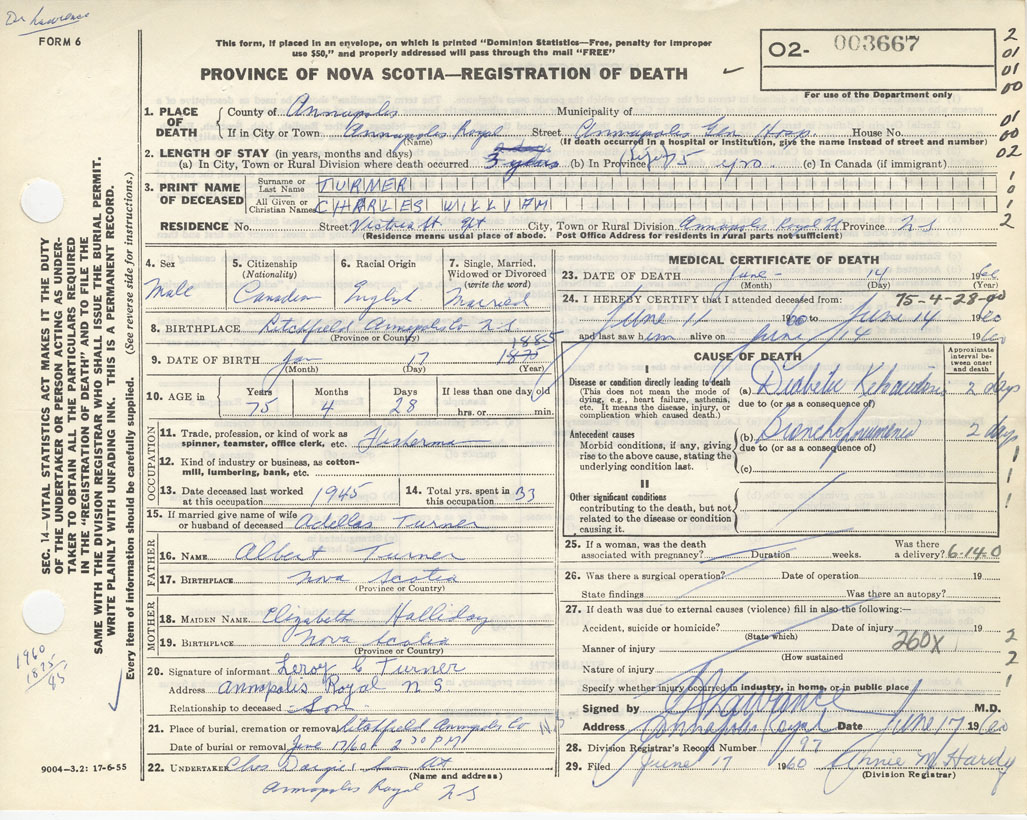 Dr Lawrence
FORM 6
This form, if placed in an envelope, on which is printed "Dominion Statistics—Free, penalty for improper
use $50," and properly addressed will pass through the mail "FREE"
PROVINCE OF NOVA SCOTIA—REGISTRATION OF DEATH
O2- 003667
For use of the Department only
2
01
01
00
01
00
02
1
0
1
2
1. PLACE OF DEATH
County of Annapolis Municipality of
If in City or Town Annapolis Royal Street Annapolis Gen Hosp. House No.
(Name) (If death occurred in a hospital or institution, give the name instead of street and number)
2. LENGTH OF STAY (in years, months and days)
(a) In City, Town or Rural Division where death occurred 3 years (b) In Province 75 yrs (c) In Canada (if immigrant)
3. PRINT NAME OF DECEASED
Surname or Last Name TURNER
All Given or Christian Names CHARLES WILLIAM
RESIDENCE No. Street Victoria St City, Town or Rural Division Annapolis Royal Province N S
(Residence means usual place of abode. Post Office Address for residents in rural parts not sufficient)
SEC. 14—VITAL STATISTICS ACT MAKES IT THE DUTY
OF THE UNDERTAKER OR PERSON ACTING AS UNDER-
TAKER TO OBTAIN ALL THE PARTICULARS REQUIRED
IN THE "REGISTRATION OF DEATH" AND TO FILE THE
SAME WITH THE DIVISION REGISTRAR WHO SHALL ISSUE THE BURIAL PERMIT.
WRITE PLAINLY WITH UNFADING INK. THIS IS A PERMANENT RECORD.
Every item of information should be carefully supplied. (See reverse side for instructions.)
4. Sex
Male
5. Citizenship
(Nationality)
Canadian
6. Racial Origin
English
7. Single, Married,
Widowed or Divorced
(write the word)
Married
8. BIRTHPLACE Litchfield Annapolis Co N S
(Province or Country)
9. DATE OF BIRTH Jan 17 1885
(Month) (Day) (Year)
10. AGE in
Years 75
Months 4
Days 28
If less than one day old
hrs. or min.
OCCUPATION
11. Trade, profession, or kind of work as
spinner, teamster, office clerk, etc. Fisherman
12. Kind of industry or business, as cotton-
mill, lumbering, bank, etc.
13. Date deceased last worked
at this occupation. 1945
14. Total yrs. spent in
this occupation. 33
15. If married give name of wife
or husband of deceased Adellas Turner
FATHER
16. NAME Albert Turner
17. BIRTHPLACE Nova Scotia
(Province or Country)
MOTHER
18. MAIDEN NAME Elizabeth Halliday
19. BIRTHPLACE Nova Scotia
(Province or Country)
20. Signature of informant Leroy C Turner
Address Annapolis Royal N S
Relationship to deceased Son
21. Place of burial, cremation or removal Litchfield Annapolis Co N.S.
Date of burial or removal June 17/60 2 30 PM
22. UNDERTAKER Chas Dargie
(Name and address)
Annapolis Royal N S
1960
1875
85
9004-3.2: 17-6-55
MEDICAL CERTIFICATE OF DEATH
23. DATE OF DEATH June - 14 1960
(Month) (Day) (Year)
24. I HEREBY CERTIFY that I attended deceased from: 75-4-28-90
June 11 1960 to June 14 1960
and last saw him alive on June 14 1960
CAUSE OF DEATH
Approximate interval between onset and death
I
Disease or condition directly leading to death
(This does not mean the mode of
dying, e.g., heart failure, asthenia,
etc. It means the disease, injury, or
complication which caused death.)
(a) Diabetic Ketoacidosis 2 days
due to (or as a consequence of)
Antecedent causes
Morbid conditions, if any, giving
rise to the above cause, stating the
underlying condition last.
(b) Bronchopneumonia 2 days
due to (or as a consequence of)
(c)
II
Other significant conditions
contributing to the death, but not
related to the disease or condition
causing it.
1
1
1
25. If a woman, was the death
associated with pregnancy? Duration weeks.
Was there
a delivery? 6-14-0
26. Was there a surgical operation? Date of operation 19
State findings Was there an autopsy?
27. If death was due to external causes (violence) fill in also the following:—
Accident, suicide or homicide? Date of injury 19
(State which)
260X
Manner of injury
(How sustained
Nature of injury
Specify whether injury occurred in industry, in home, or in public place
2
2
1
Signed by Lawrence M.D.
Address Annapolis Royal Date June 17 1960
28. Division Registrar's Record Number 97
29. Filed June 17 1960 Annie M Hardy
(Division Registrar)